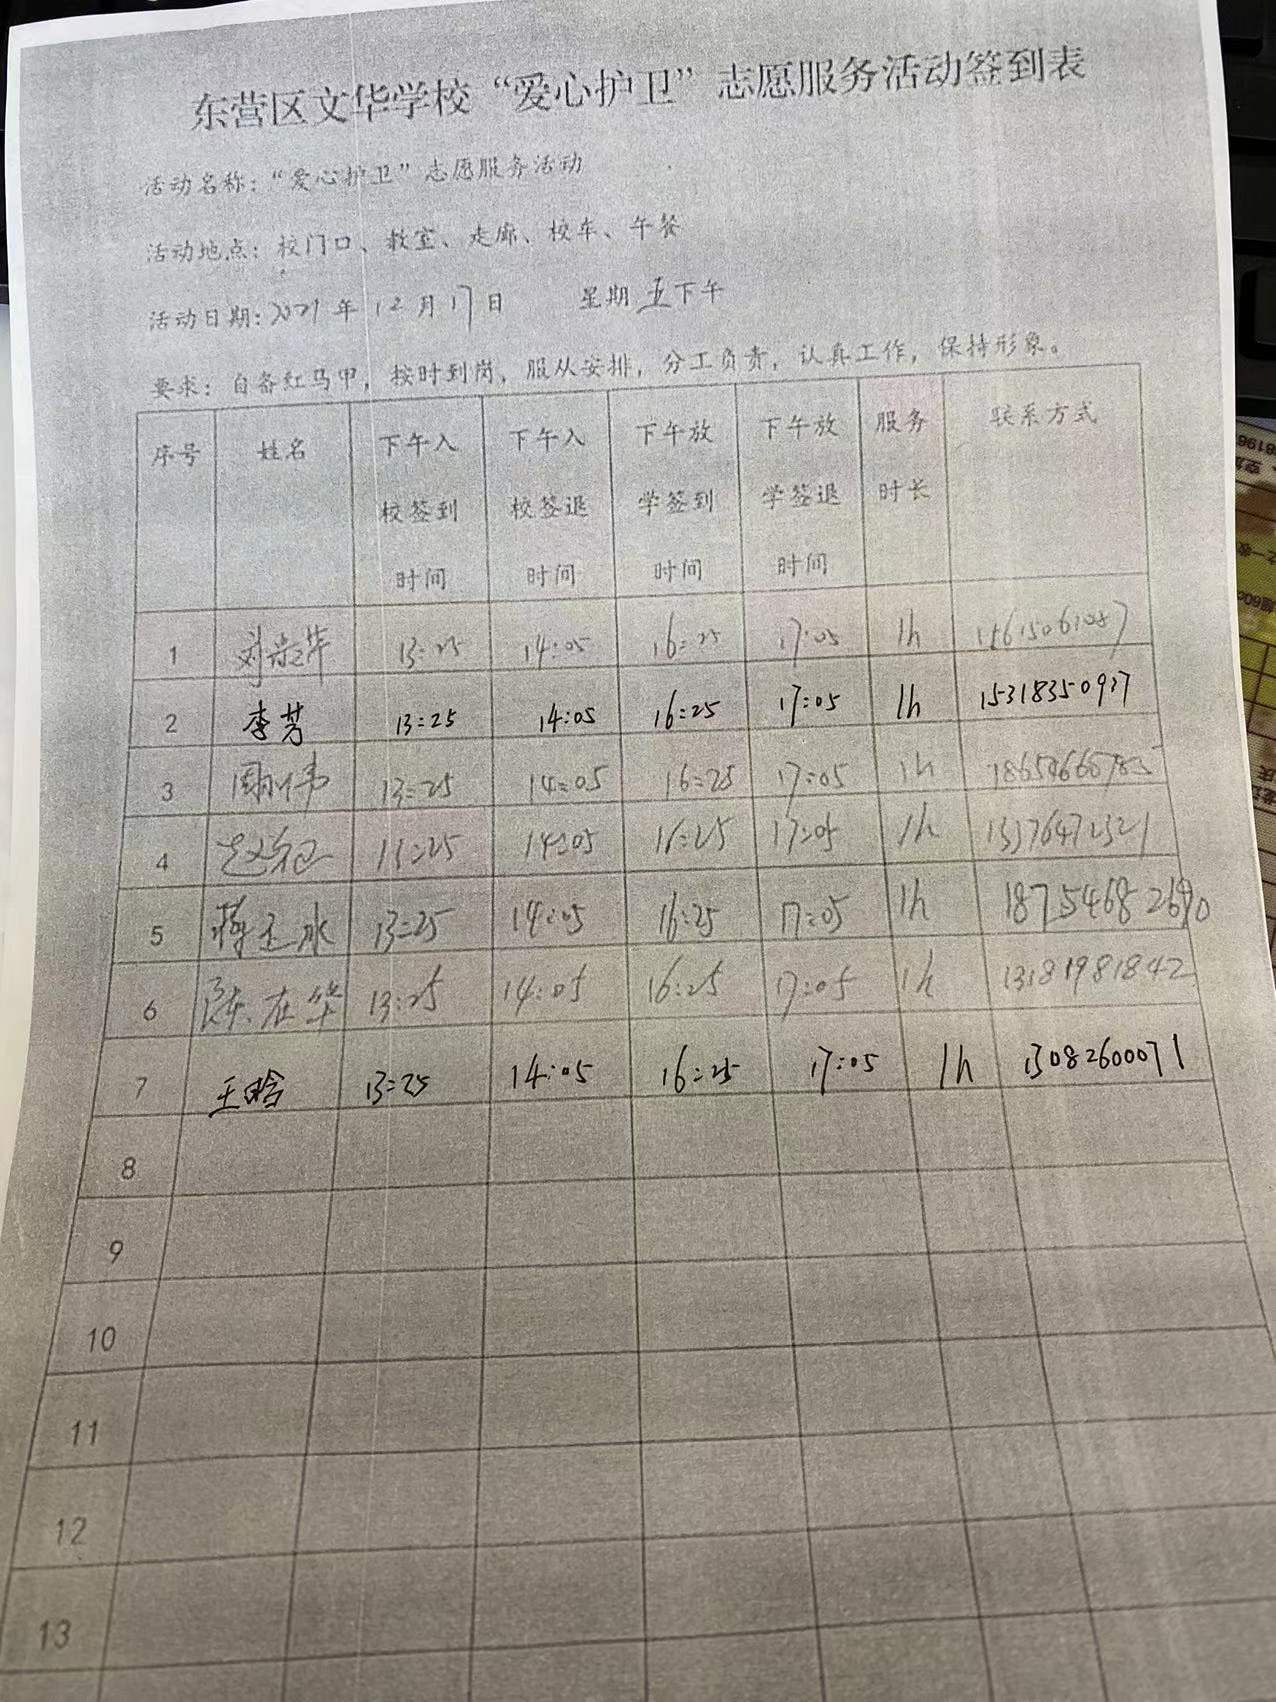 东营区文华学校“爱心护卫”志愿服务活动签到表
活动名称：“爱心护卫”志愿服务活动
活动地点：校门口、教室、走廊、校车、午餐
活动日期：2021年12月17日 星期五下午
要求：自备红马甲，按时到岗，服从安排，分工负责，认真工作，保持形象。
序号 姓名 下午入校签到时间 下午入校签退时间 下午放学签到时间 下午放学签退时间 服务时长 联系方式
1 13:25 14:05 16:25 17:05 1h
2 李芳 13:25 14:05 16:25 17:05 1h 15318350937
3 13:25 14:05 16:25 17:05 1h
4 14:05 16:25 17:05 1h
5 13:25 14:05 16:25 17:05 1h
6 陈在华 13:25 14:05 16:25 17:05 1h 13181981842
7 王晗 13:25 14:05 16:25 17:05 1h 13082600071
8
9
10
11
12
13